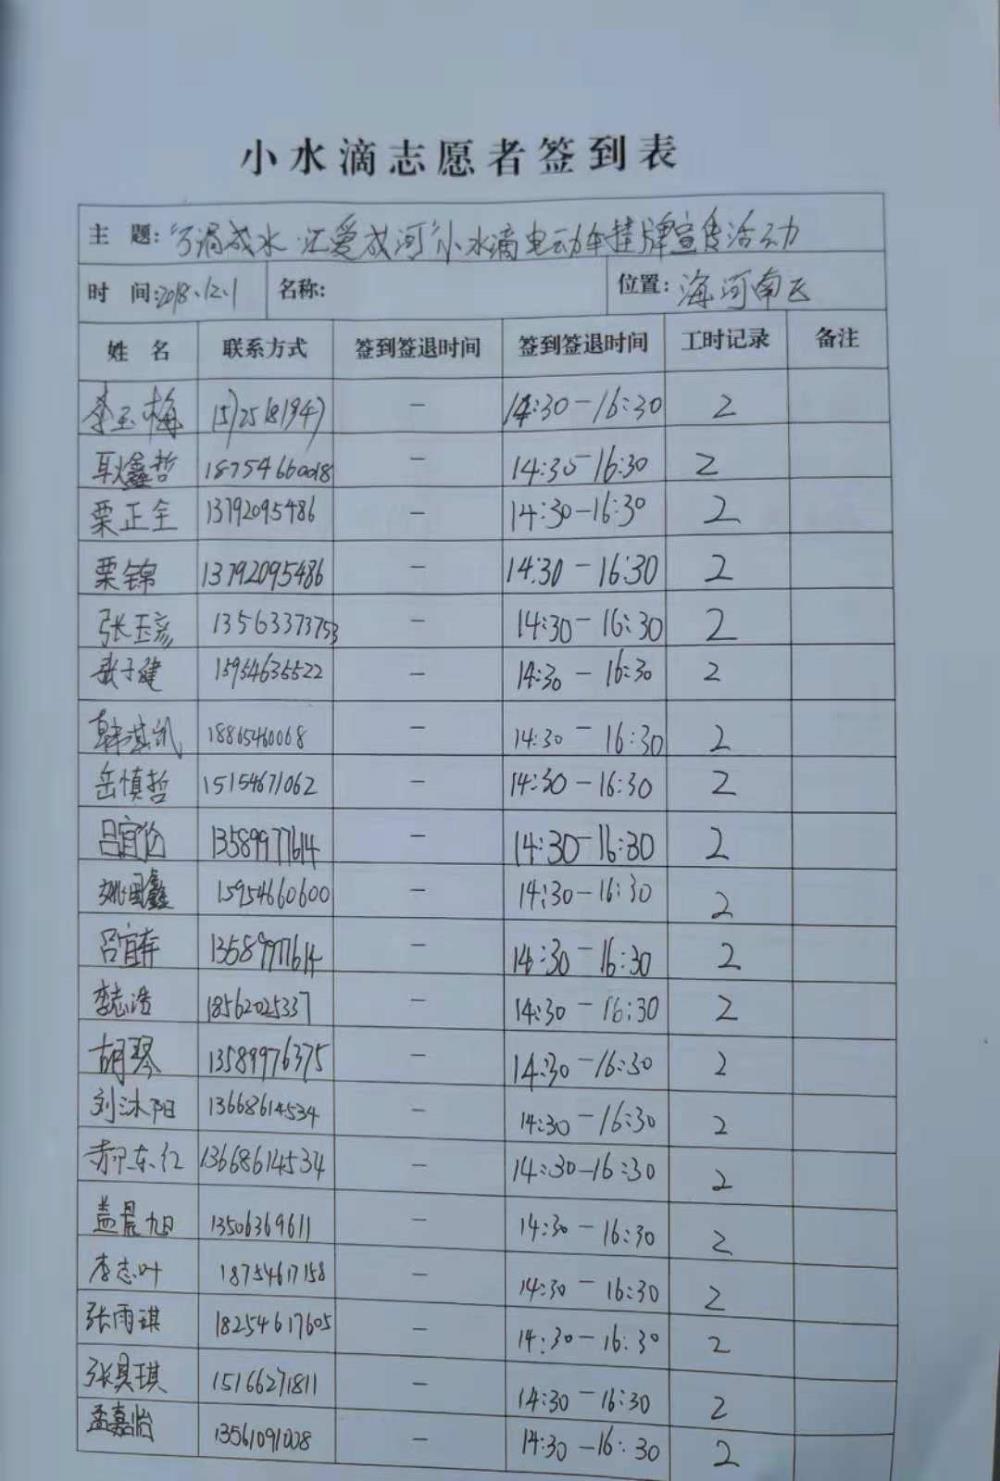 小水滴志愿者签到表
主 题: "万涓成水 汇爱成河"小水滴电动车挂牌宣传活动
时 间: 2018.12.1 名称: 位置: 海河南区
姓 名 联系方式 签到签退时间 签到签退时间 工时记录 备注
李玉梅 15725181947 — 14:30-16:30 2
耿鑫哲 18754660018 — 14:30-16:30 2
栗正全 13792095486 — 14:30-16:30 2
栗锦 13792095486 — 14:30-16:30 2
张玉彦 13563373753 — 14:30-16:30 2
张子健 15954635522 — 14:30-16:30 2
韩淇凯 18865460068 — 14:30-16:30 2
岳慎哲 15154671062 — 14:30-16:30 2
吕宜 13589977614 — 14:30-16:30 2
姚国鑫 15954660600 — 14:30-16:30 2
吕宜 13589977614 — 14:30-16:30 2
李志浩 18562025337 — 14:30-16:30 2
胡琴 13589976375 — 14:30-16:30 2
刘沐阳 13668614534 — 14:30-16:30 2
郝东红 13668614534 — 14:30-16:30 2
盖晨旭 13506369611 — 14:30-16:30 2
李志叶 18754617158 — 14:30-16:30 2
张雨琪 18254617605 — 14:30-16:30 2
张具琪 15166271811 — 14:30-16:30 2
孟嘉怡 13561091008 — 14:30-16:30 2